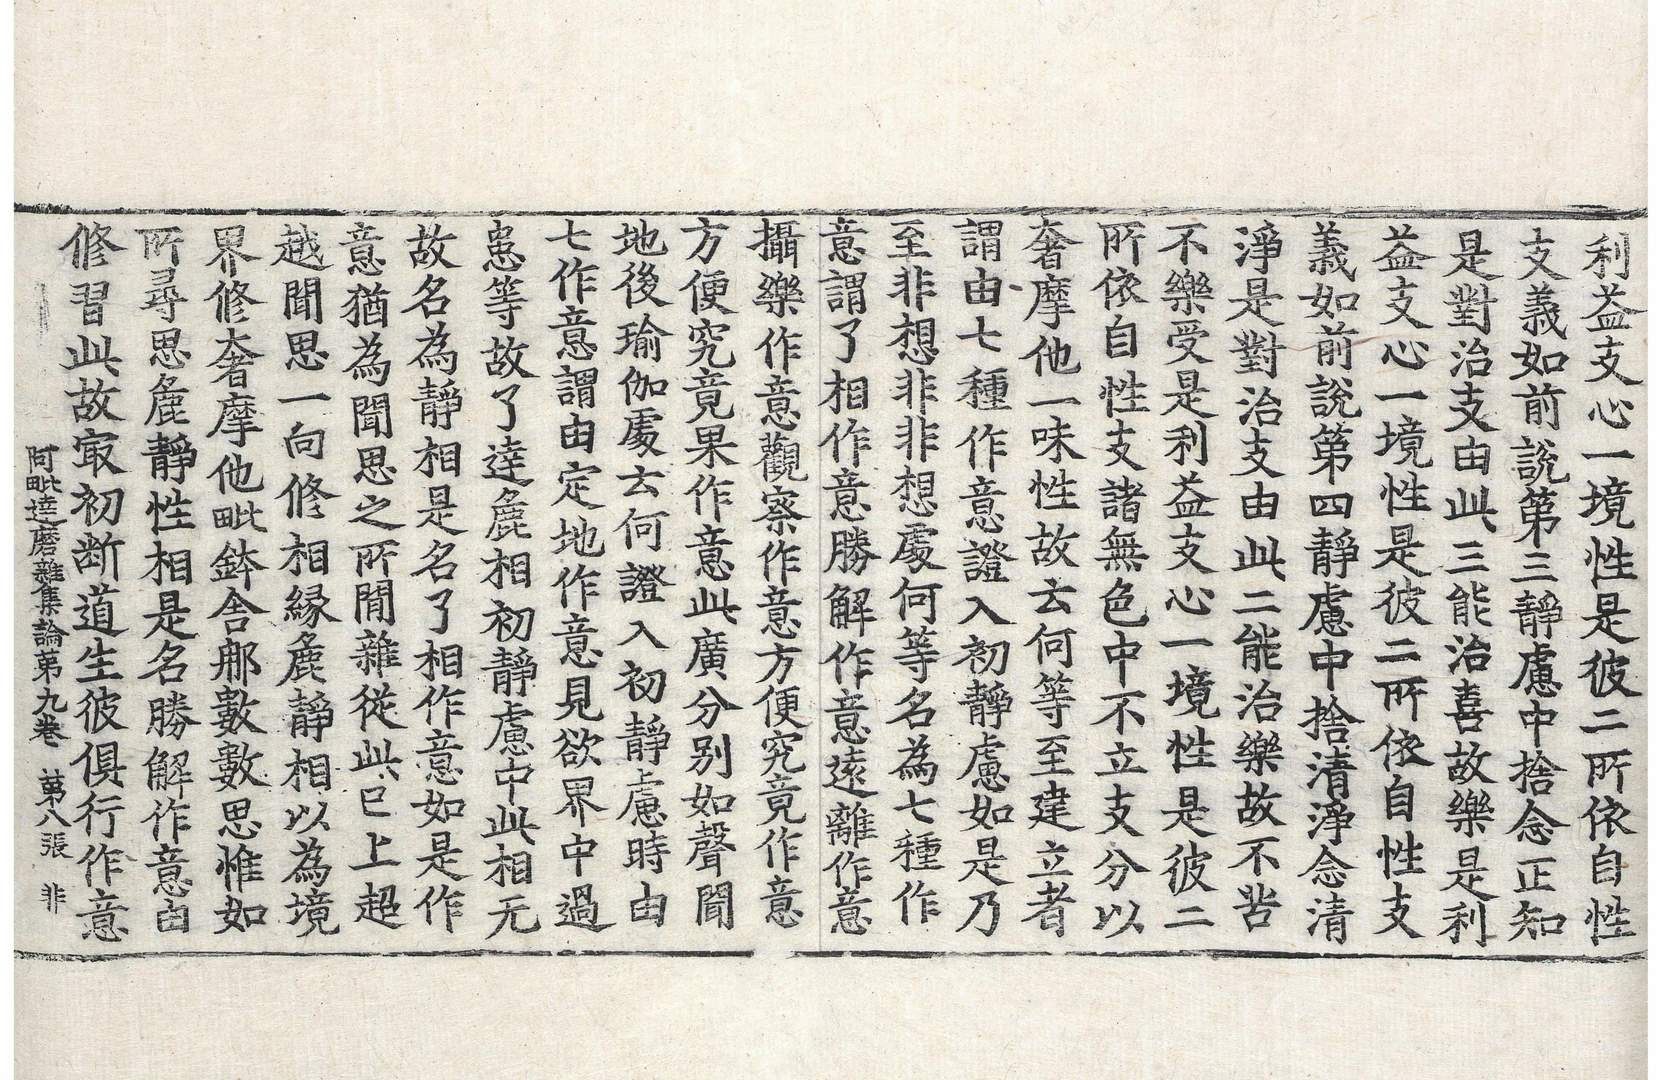 利益支心一境性是彼二所依自性
支義如前說第三靜慮中捨念正知
是對治支由此三能治喜故樂是利
益支心一境性是彼二所依自性支
義如前說第四靜慮中捨清淨念清
淨是對治支由此二能治樂故不苦
不樂受是利益支心一境性是彼二
所依自性支諸無色中不立支分以
奢摩他一味性故云何等至建立者
謂由七種作意證入初靜慮如是乃
至非想非非想處何等名為七種作
意謂了相作意勝解作意遠離作意
攝樂作意觀察作意方便究竟作意
方便究竟果作意此廣分别如聲聞
地後瑜伽處云何證入初靜慮時由
七作意謂由定地作意見欲界中過
患等故了達麁相初靜慮中此相无
故名為靜相是名了相作意如是作
意猶為聞思之所間雜從此已上超
越聞思一向修相緣麁靜相以為境
界修奢摩他毗鉢舍那數數思惟如
所尋思麁靜性相是名勝解作意由
修習此故㝡初断道生彼俱行作意
阿毗達磨雜集論第九卷 第八張 非